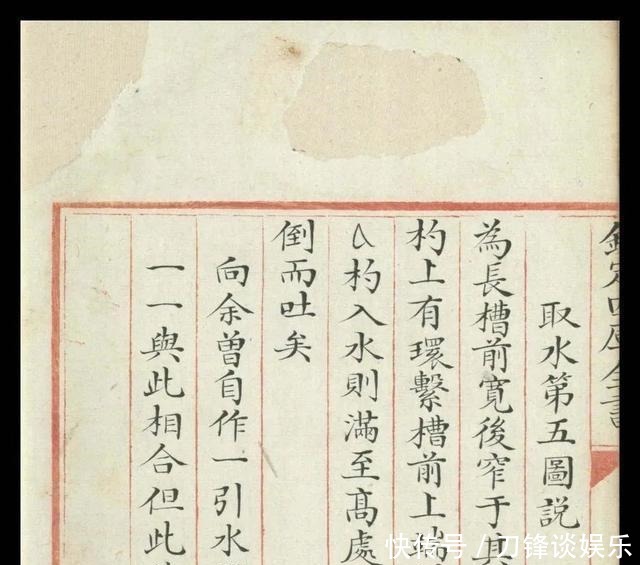 欽定四庫全書
取水第五圖説
為長槽前寬後窄于其
杓上有環繫槽前上端
杓入水則滿至髙處
倒而吐矣
向余曾自作一引水
一一與此相合但此
快传号/刀锋谈娱乐